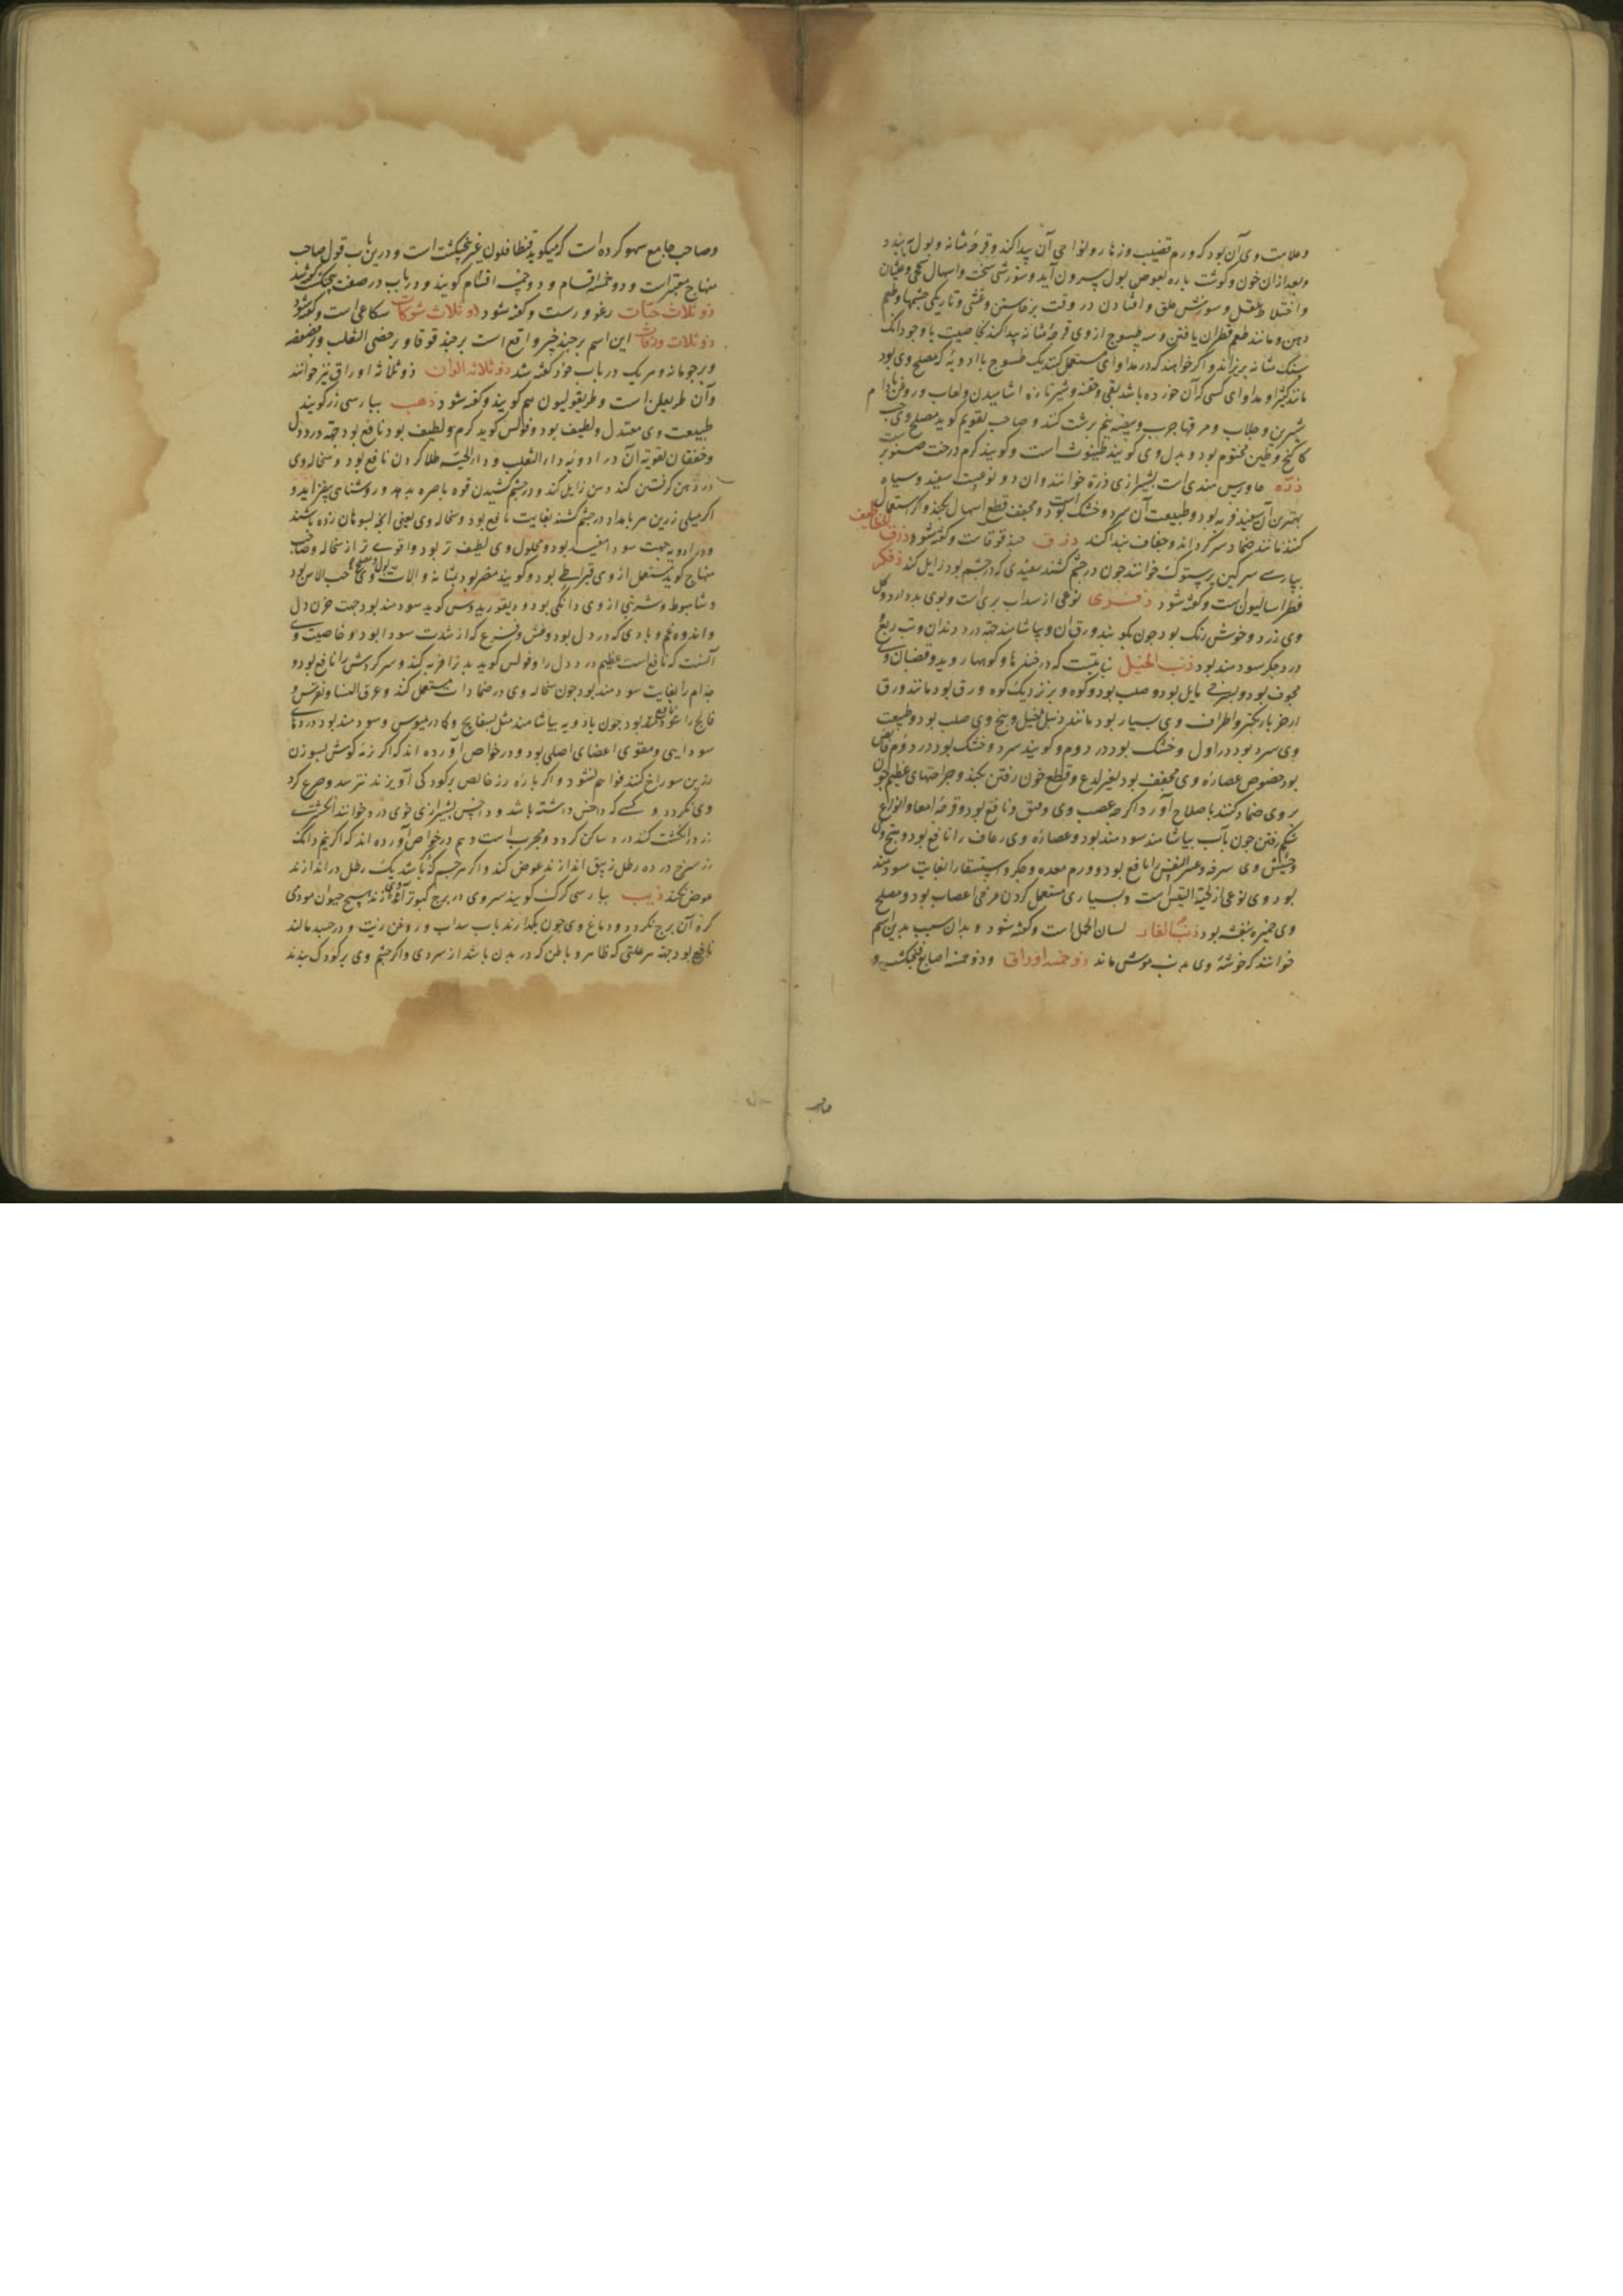 وعلامت وی آن بود که ورم قضیب وزهار ونواحی آن پیدا کند وقرحه مثانه وبول به بندد
وبعد از ان خون وگوشت باره بعوض بول بیرون آید وسوزشی سخت واسهال سحجی وغثیان
واختلاط عقل وسوزش حلق وافتادن در وقت برخاستن وغشی وتاریکی چشمها وطعم
دهن ومانند طعم قطران یافتن وسه طسوج از وی قرحهٔ مثانه پیدا کند بخاصیت با وجود آنک
سنک مثانه بریزاند واکر خواهند که در مداوای مستعمل کنند یک طسوج با ادویهٔ که مصلح وی بود
مانند کثیرا ومداوای کسی که آن خورده باشد بقی وحقنه وشیر تازه اشامیدن ولعاب وروغن بادام
شیرین وجلاب ومرقها چرب وبیضه نیم برشت کنند وصاحب تقویم کوید مصلح وی حب
کاکنج وطین مختوم بود وبدل وی کویند است وکویند کرم درخت صنوبر
ذره جاورس هندی است بشیرازی ذرة خوانند وان دو نوعست سفید وسیاه
بهترین آن سفید فربه بود وطبیعت آن سرد وخشک بود ومجفف قطع اسهال بکند واکر استعمال
کنند مانند ضماد سرد کرداند وجفاف پیدا کند ذرق حندقوقاست وکفته شود ذرق الخطاطیف
بپارسی سرکین پرستوک خوانند چون در چشم کشند سفیدی که در چشم بود زایل کند
فطراسالیون است وکفته شود نوعی از سداب بری است وبوی بد دارد وکل
وی زرد وخوش رنک بود چون بکوبند ورق آن وبیاشامند جهة درد دندان وتب ربع
ودرد جکر سودمند بود ذنب الخیل نباتیست که در خندقها وکوهها روید وقضبان وی
مجوف بود وبسرخی مایل بود وصلب بود وکره وبر نزدیک کره ورق بود مانند ورق
اذخر باریکتر واطراف وی بسیار بود مانند ذنب الخیل وبیخ وی صلب بود وطبیعت
وی سرد بود در اول وخشک بود در دوم وکویند سرد وخشک بود در دوم قابض
بود خصوص عصارهٔ وی مجفف بود بغیر لذع وقطع خون رفتن بکند وجراحتهای عظیم چون
بر وی ضماد کنند باصلاح آورد اکرچه عصب وی وفتق را نافع بود وقرحهٔ امعا وانواع
شکم رفتن چون بآب بیاشامند سودمند بود وعصارهٔ وی رعاف را نافع بود وبیخ وی
وحشیش وی سرفه وعسر النفس را نافع بود وورم معده وجکر واستسقا را بغایت سودمند
بود وی نوعی از لحیة التیس است وبسیاری مستعمل کردن مرخی اعصاب بود ومصلح
وی خمیره بنفشه بود ذنب الفار لسان الحمل است وکفته شود وبدان سبب بدین اسم
خوانند که خوشهٔ وی بدنب موش ماند ذو خمسه اوراق وذو خمسه اصابع فنجنکشت و
وصاحب جامع سهو کرده است که میکوید قنطافلون غیر بنجنکشت است ودرین باب قول صاحب
منهاج معتبر است وذو خمسه اقسام وذو اقسام کویند ودر باب در صفت بنجنکشت کفته شد
ذو ثلاث حبات زعرور است وکفته شود ذو ثلاث شوکات شکاعی است وکفته شود
ذو ثلاث ورقات این اسم بر چند چیز واقع است بر حندقوقا وبر خصی الثعلب وبر
وبر جومانه وهر یک در باب خود کفته شد ذو ثلاثه الوان ذو ثلاثه اوراق نیز خوانند
وآن طریفلن است وطریفولیون هم کویند وکفته شود ذهب بپارسی زر کویند
طبیعت وی معتدل ولطیف بود وفولس کوید کرم ولطیف بود نافع بود جهة درد دل
وخفقان تقویت آن در ادویهٔ داء الثعلب وداء الحیه طلا کردن نافع بود وسحاله وی
در دهن کرفتن کند دهن زایل کند ودر چشم کشیدن قوه باصره بدهد وروشنایی بیفزاید و
اکر میلی زرین هر بامداد در چشم کشند بغایت نافع بود وسحاله وی یعنی آنچه بسوهان زده باشند
ودر ادویه جهت سودا مفید بود ومحلول وی لطیف تر بود واقوی تر از سحاله وصاحب
منهاج کوید مستعمل از وی قیراطی بود وکویند مضر بود بمثانه والات بول ومصلح وی حب الاس بود
وشاهبلوط وشربتی از وی دانکی بود ودیسقوریدوس کوید سودمند بود جهت حزن دل
واندوه وغم وبادی که در دل بود وعشق وفزع که از شدت سودا بود وخاصیت وی
آنست که نافع است عظیم درد دل را وفولس کوید بدن را فربه کند وسر کردش را نافع بود و
جذام را بغایت سودمند بود چون سحاله وی در ضمادات مستعمل کنند وعرق النسا ونقرس و
فالج را نافع بود چون بادویه بیاشامند مثل بسفایج وکمادریوس وسودمند بود دردهای
سودایی ومقوی اعضای اصلی بود ودر خواص آورده اند که اکر نرمه کوش بسوزن
زرین سوراخ کنند فراهم نشود واکر باره زر خالص بر کودکی آویزند نترسد وصرع کرد
وی نکردد وکسی که داحس داشته باشد وداحس بشیرازی خوی درد خوانند انکشتری
زر در انکشت کند درد ساکن کردد ومجرب است وهم در خواص آورده اند که اکر نیم دانک
زر سرخ در ده رطل زیبق اندازند غوص کند واکر هر چه که باشد یک رطل در اندازند
غوص نکند ذیب بپارسی کرک کویند سر وی در برج کبوتر آویزند هیچ حیوان موذی
کرد آن برج نکردد ودماغ وی چون بکدازند بآب سداب وروغن زیت ودر جسد مالند
نافع بود جهة هر علتی که ظاهر وباطن که در بدن باشد از سردی واکر چشم وی بر کودک بندند